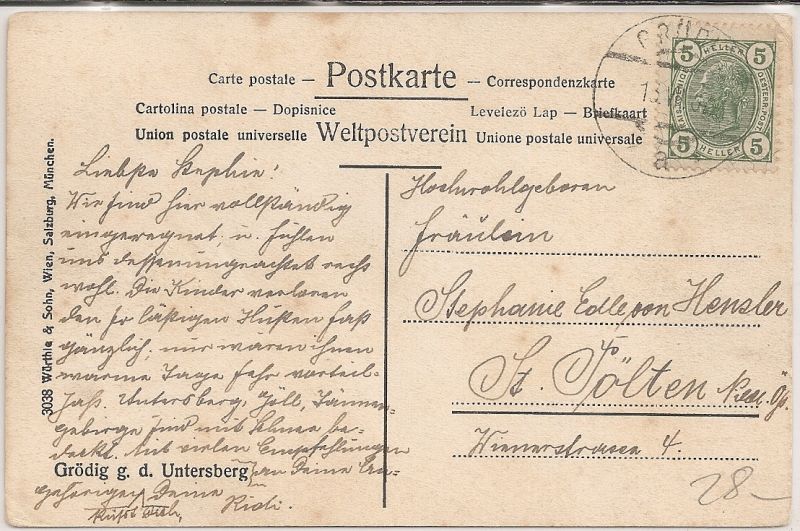 Carte postale — Postkarte — Correspondenzkarte
Cartolina postale — Dopisnice Levelezö Lap — Briefkaart
Union postale universelle Weltpostverein Unione postale universale
5 HELLER 5
5 HELLER 5
3038 Würthle & Sohn, Wien, Salzburg, München.
Liebste Stephie!
Wir sind hier vollständig
eingeregnet, u. fühlen
uns dessenungeachtet recht
wohl. Die Kinder verloren
den so lästigen Husten fast
gänzlich, nur waren ihnen
warme Tage sehr vorteil-
haft. Untersberg, Göll, Tännen-
gebirge sind mit Schnee be-
deckt. Mit vielen Empfehlungen
Grödig g. d. Untersberg an Deine An-
gehörigen Deine
küsst Dich, Risi.
Hochwohlgeboren
Fräulein
Stephanie Edle von Hensler
St. Pölten
Wienerstrasse 4.
28-